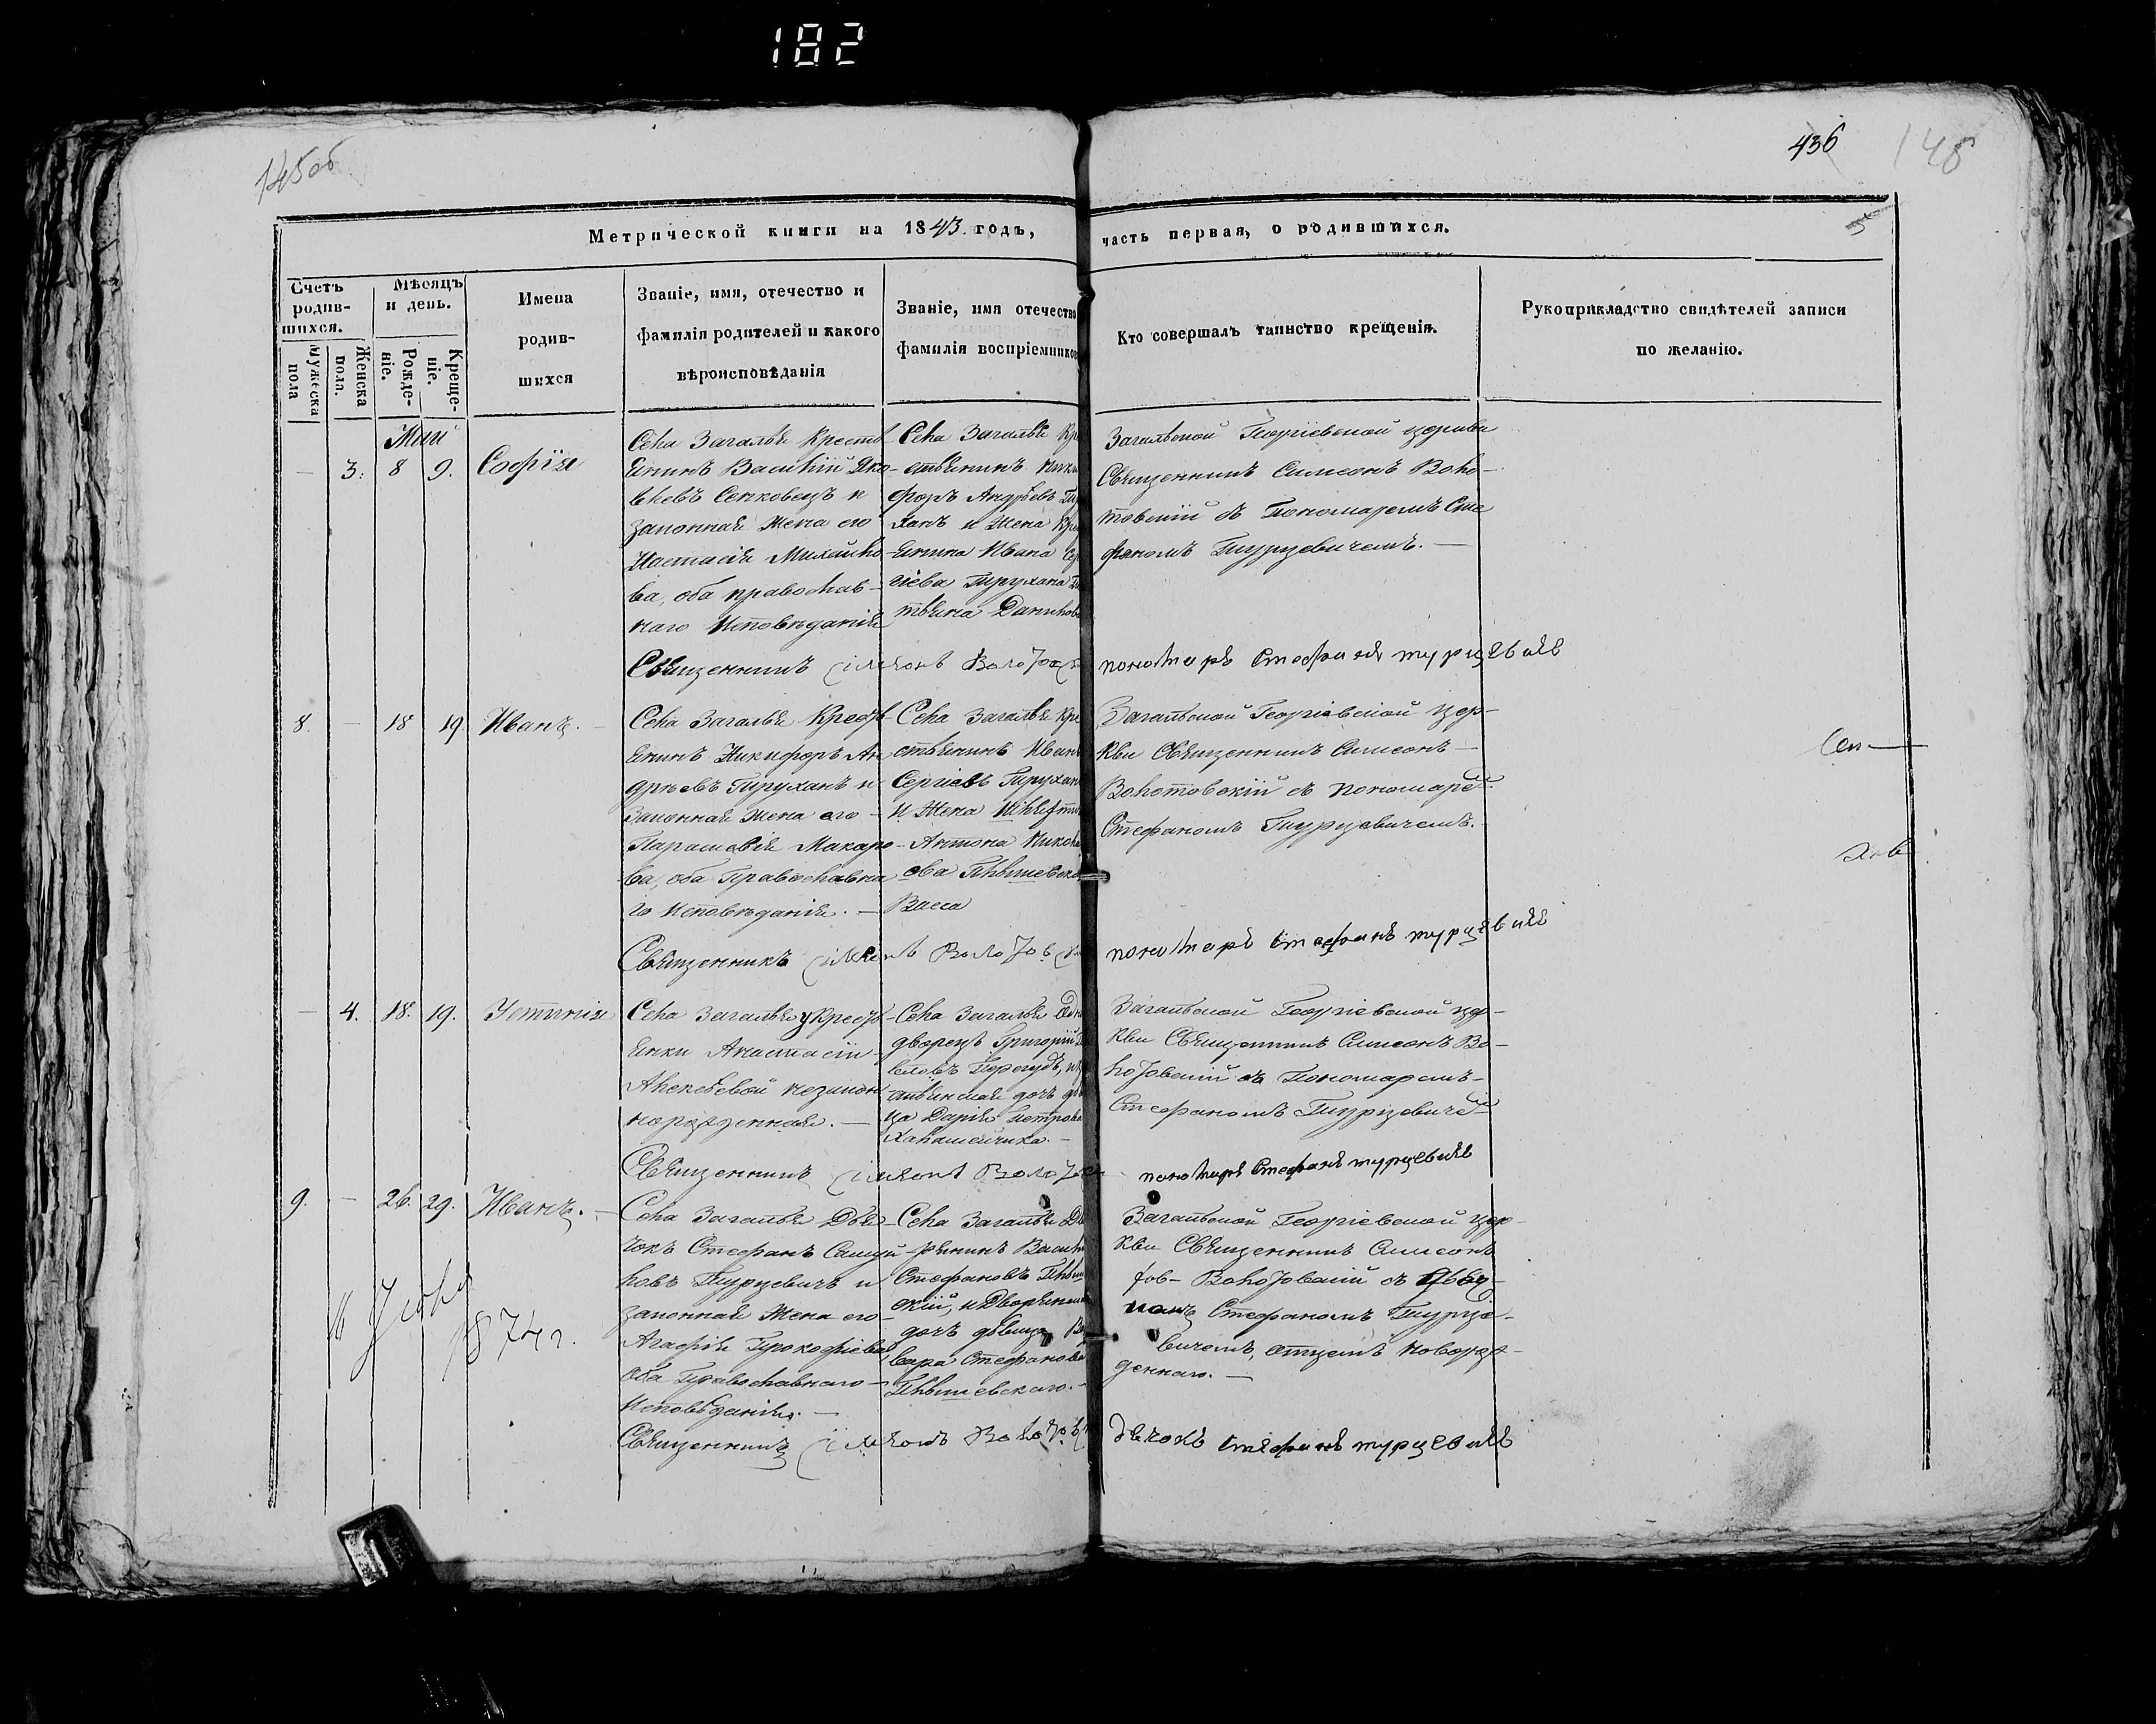 182
145об
436
Метрической книги на 1843 годъ, часть первая, о родившихся.
Счетъ родив-
шихся.
Мужеска пола
Женска пола.
Мѣсяцъ и день.
Рожде-
ніе.
Креще-
ніе.
Имена
родив-
шихся
Званіе, имя, отечество и
фамилія родителей и какого
вѣроисповѣданія
Званіе, имя отечество
фамилія воспріемников
Кто совершалъ таинство крещенія.
Рукоприкладство свидѣтелей записи
по желанію.
Маій
— 3. 8 9. Софія
Села Загалья Крестъ-
янинъ Василій Яко-
влевъ Сенковецъ и
законная жена его
Настасія Михайло-
ва, оба православ-
наго Исповѣданія
Села Загалья Кре
стьянинъ Ники
форъ Андрѣевъ
ханъ и Жена Кре
янина Ивана Сер
гіева Трухана
тьяна Данилова
Загальской Георгіевской церкви
Священникъ Симеонъ Воло-
товскій съ Пономаремъ Сте
фаномъ Турцевичемъ. —
Священникъ Сімеонъ Волотов
пономаръ Стефанъ турцевичъ
8. — 18 19. Иванъ. —
Села Загалья Крестъ-
янинъ Никифоръ Ан
дрѣевъ Труханъ и
Законная жена его —
Параскевія Макаро-
ва, оба Православна
го Исповѣданія. —
Села Загалья Кре
стьянинъ Иванъ
Сергіевъ Трухан
и Жена
Антона Никола
ева
Васса
Загальской Георгіевской цер-
кви Священникъ Симеонъ —
Волотовскій съ пономаре
Стефаномъ Турцевичемъ.
Священникъ Сімеонъ Волотов
пономаръ Стефанъ турцевичъ
— 4. 18. 19. Устинія
Села Загалья у Крестъ-
янки Анастасіи
Алексѣевой незакон
норожденная. —
Села Загалья Одно
дворецъ Григорій
ца Дарія Петрова
Загальской Георгіевской цер-
кви Священникъ Симеонъ Во-
лотовскій съ Пономаремъ —
Стефаномъ Турцевиче
Священникъ Сімеонъ Волотов
пономаръ Стефанъ турцевичъ
9. — 26. 29. Иванъ. —
Села Загалья Дья-
чокъ Стефанъ Самуй-
ловъ Турцевичъ и
законная Жена его —
Агафія Прокофіева,
Оба Православнаго —
Исповѣданія. —
Села Загалья Дво
рянинъ Василій
Стефановъ
скій, и Дворянска
дочъ дѣвица Вар
вара Стефанова
Загальской Георгіевской цер-
кви Священникъ Симеонъ
Волотовскій съ
Стефаномъ Турце-
вичемъ, отцемъ новорож-
деннаго. —
Священникъ Сімеонъ Волотов
Дьячокъ Стефанъ турцевичъ
1874 г.